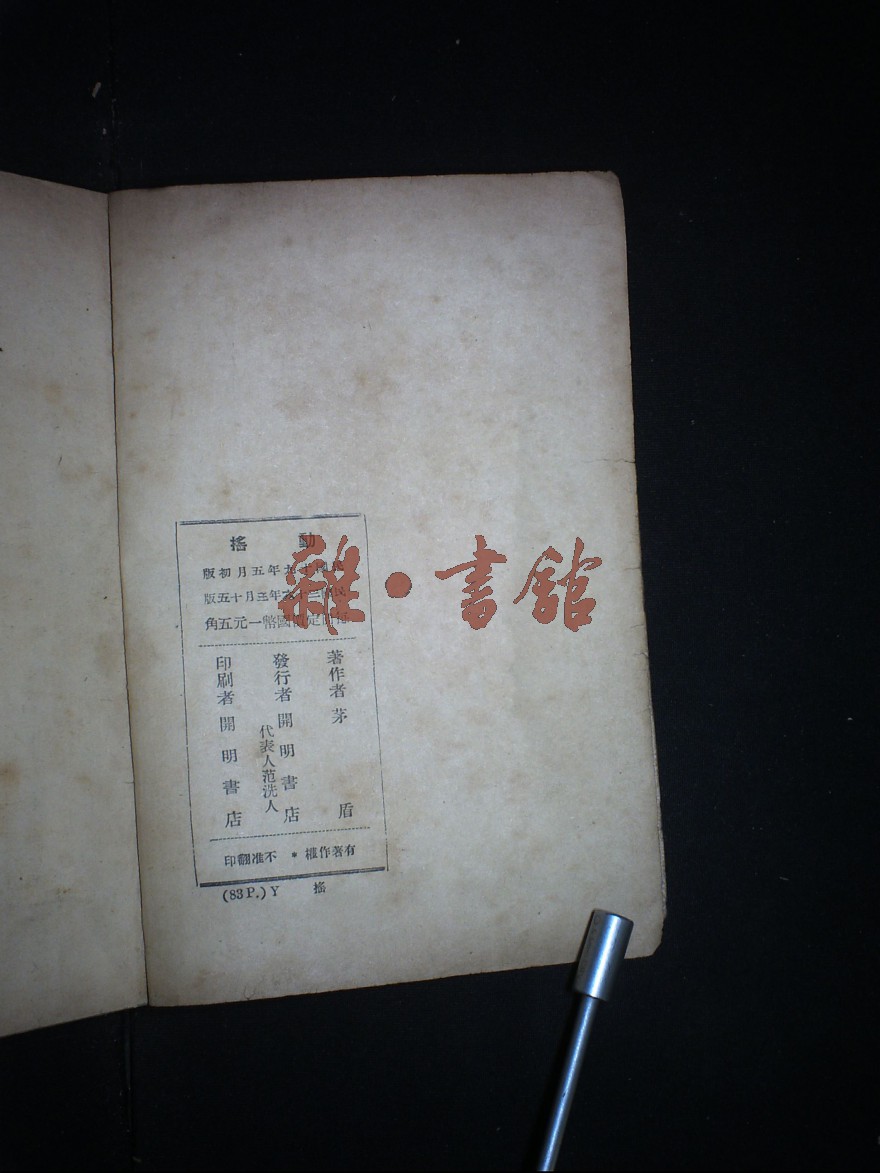 動搖
民國十九年五月初版
民國三十五年三月十五版
每冊定價國幣一元五角
著作者 茅盾
發行者 開明書店
代表人范洗人
印刷者 開明書店
有著作權＊不准翻印
(83P.)Y 搖
雜·書館